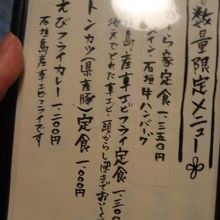 数量限定メニュー
ら家定食 一、三五〇円
イン、石垣牛ハンバーグ
島産車エビフライ定食 一、三〇〇
地元でとれた車エビ、頭からしっぽまでおい
トンカツ(県産豚)定食 一、〇〇〇円
えびフライカレー 一、二〇〇円
石垣島産車エビフライです